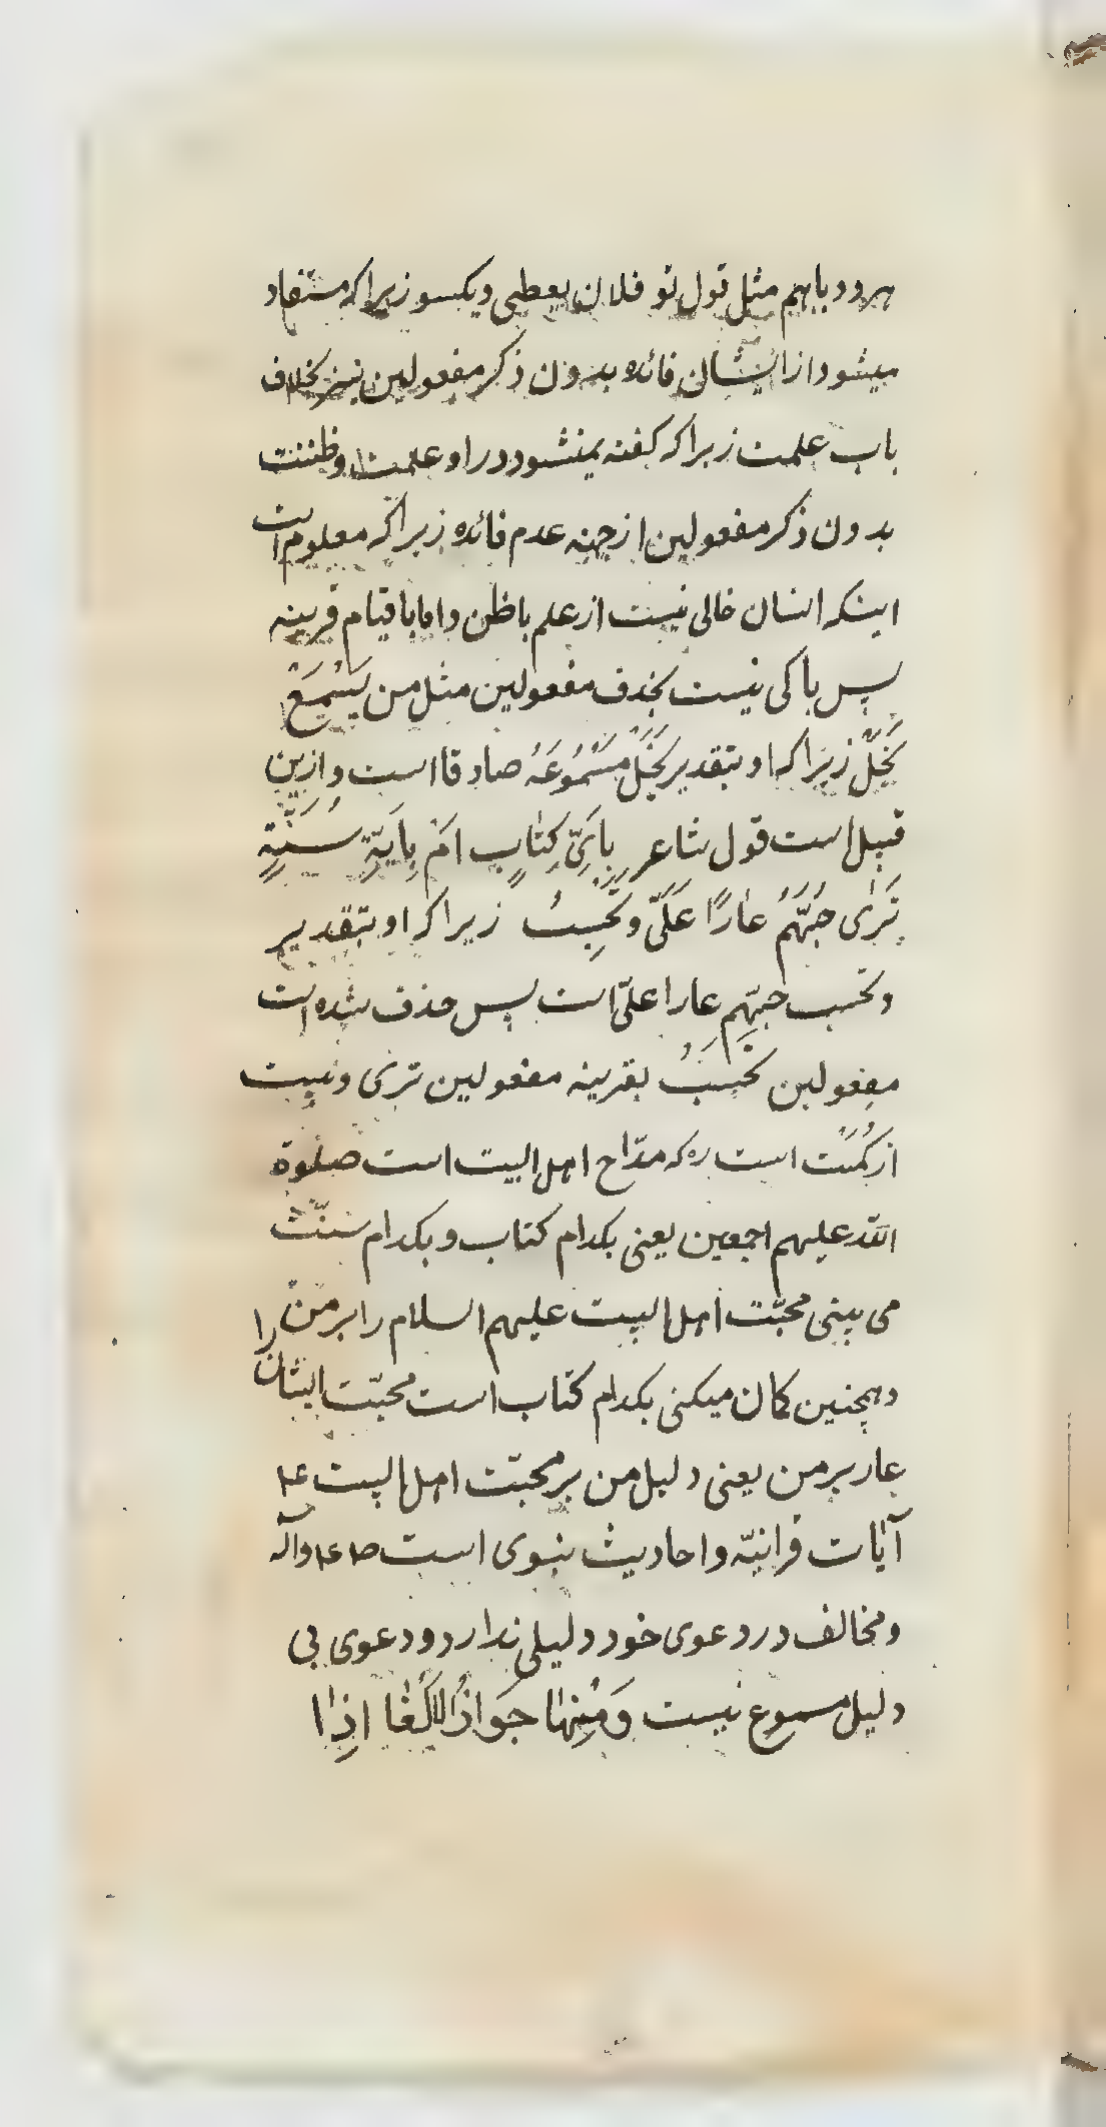 هر دو باهم مثل قول تو فلان یعطی و یکسو زیرا که مستفاد
میشود از ایشان فائده بدون ذکر مفعولین نیز بخلاف
باب علمت زیرا که گفته نمیشود در او علمت و ظننت
بدون ذکر مفعولین از جهة عدم فائده زیرا که معلوم است
اینکه انسان خالی نیست از علم یا ظن و اما با قیام قرینه
پس باکی نیست بحذف مفعولین مثل من یَسْمَعْ
یَخَلْ زیرا که او بتقدیر یَخَلْ مَسْمُوعَهُ صادقا است و ازین
قبیل است قول شاعر بِاَیِّ کِتٰابٍ اَمْ بِاَیَّةِ سُنَّةٍ
تَرٰی حُبَّهُمْ عٰارًا عَلَیَّ وَ تَحْسِبُ زیرا که او بتقدیر
و تحسب حبّهم عارا علیّ است پس حذف شده است
مفعولین تحسبُ بقرینه مفعولین تری و نیست
از کُمَیت است ره که مدّاح اهل البیت است صلوة
اللّه علیهم اجمعین یعنی بکدام کتاب و بکدام سنّت
می بینی محبّت اهل البیت علیهم السلام را بر من
و همچنین کمان میکنی بکدام کتاب است محبّت ایشان را
عار بر من یعنی دلیل من بر محبّت اهل البیت ع
آیات قرانیّه و احادیث نبوی است ص ع و آله
و مخالف در دعوی خود دلیلی ندارد و دعوی بی
دلیل مسموع نیست وَ مِنْهٰا جَوٰازُ الْاِلْغٰاءِ اِذٰا